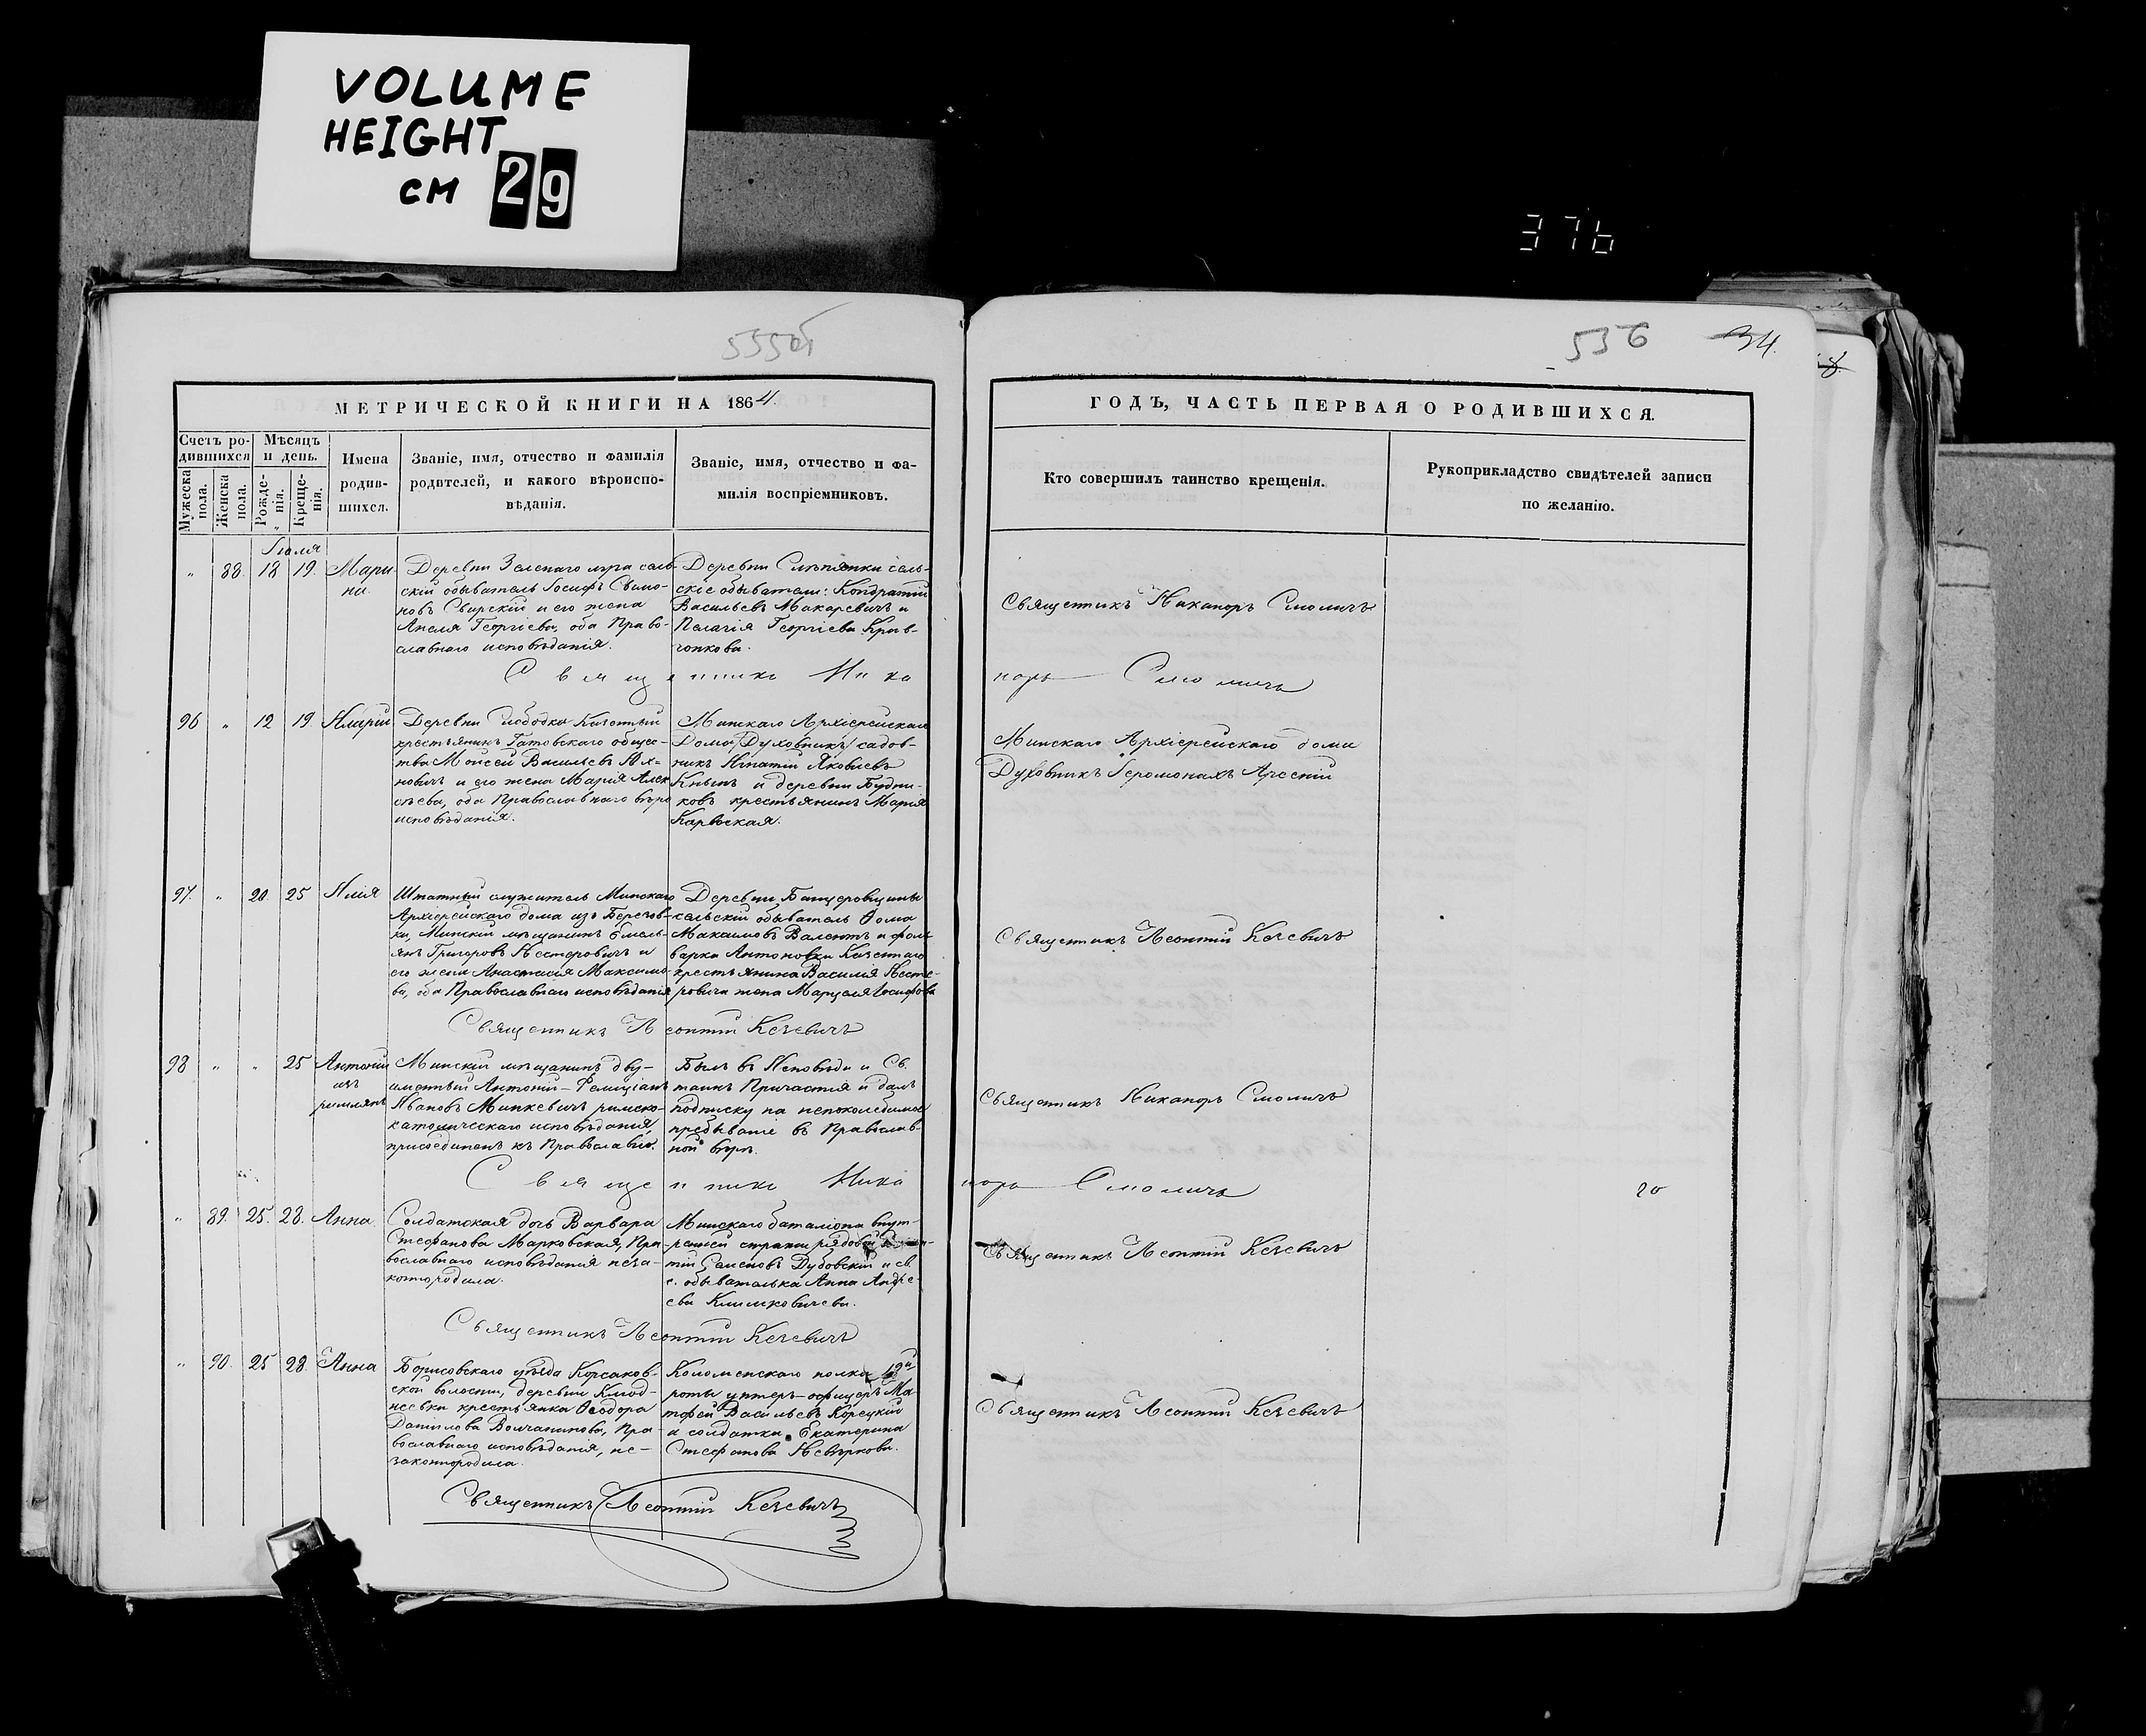 VOLUME
HEIGHT
CM 29
376
535об
536
34.
МЕТРИЧЕСКОЙ КНИГИ НА 1864.
ГОДЪ, ЧАСТЬ ПЕРВАЯ О РОДИВШИХСЯ.
Счетъ ро-
дившихся
Мужеска пола.
Женска пола.
Мѣсяцъ
и день.
Рожде-
нія.
Креще-
нія.
Имена
родив-
шихся.
Званіе, имя, отчество и фамилія
родителей, и какого вѣроиспо-
вѣданія.
Званіе, имя, отчество и фа-
милія воспріемниковъ.
Кто совершилъ таинство крещенія.
Рукоприкладство свидѣтелей записи
по желанію.
Іюля
„ 88. 18 19. Мари
на.
Деревни Зеленаго луга сель-
скій обыватель Іосифъ Симо-
новъ Свирскій и его жена
Анеля Георгіева, оба Право-
славнаго исповѣданія.
Деревни Слѣпянки сель-
скіе обыватели: Кондратій
Васильевъ Макаревичъ и
Пелагія Георгіева Крив-
чонкова.
Священникъ Никаноръ Смоличъ
Священникъ Ника
норъ Смоличъ
96 „ 12 19
Деревни Слободки Казенный
крестьянинъ Гатовскаго общес-
тва Моисей Васильевъ
новичъ и его жена Марія Алек
сѣева, оба Православнаго вѣро
исповѣданія.
Минскаго Архіерейскаго
Дома /Духовникъ/ садов-
никъ Игнатій Яковлевъ
и деревни Будни-
ковъ крестьянинъ Марія
Карвская.
Минскаго Архіерейскаго дома
Духовникъ Іеромонахъ Арсеній
97. „ 20. 25 Илія
Штатный служитель Минскаго
Архіерейскаго дома изъ Березов-
ки, Минскій мѣщанинъ Емель-
янъ Григоровъ Нестеровичъ и
его жена Анастасія Максимо-
ва, оба Православнаго исповѣданія
Деревни Банцеровщины
сельскій обыватель Ѳома
Максимовъ Валентъ и фоль
варка Антоновки Казеннаго
крестьянина Василія Несте-
ровича жена Марцеля Іосифова
Священникъ Леонтій Кечевичъ
Священникъ Леонтій Кечевичъ
98 „ „ 25 Антоній
изъ
римлянъ
Минскій мѣщанинъ дву-
именный Антоній-Фелиціанъ
Ивановъ Минкевичъ римско-
католическаго исповѣданія,
присоединенъ къ Православію.
Былъ въ Исповѣди и Св.
таинъ Причастія и далъ
подписку на непоколебимое
пребываніе въ Православ-
ной вѣрѣ.
Священникъ Никаноръ Смоличъ
Священникъ Ника
норъ Смоличъ
20
„ 89. 25. 28. Анна.
Солдатская дочь Варвара
Стефанова Марковская, Пра-
вославнаго исповѣданія неза-
конно родила.
Минскаго баталіона внут-
ренней стражи рядовой
тій Семеновъ Дубовскій и св.
с. обывателька Анна Андре-
ева Климковичева.
Священникъ Леонтій Кечевичъ
Священникъ Леонтій Кечевичъ
„ 90. 25 28. Анна
Борисовскаго уѣзда Корсаков-
ской волости, деревни
крестьянка Ѳеодора
Данилова Волчанинова, Пра-
вославнаго исповѣданія, не-
законно родила.
Коломенскаго полка 12й
роты унтеръ-офицеръ Ма-
тфей Васильевъ Корецкій
и солдатка Екатерина
Стефанова Невѣркова.
Священникъ Леонтій Кечевичъ
Священникъ Леонтій Кечевичъ